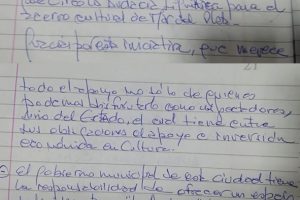 para el
acervo cultural de Mar del Plata.
Gracias por esta iniciativa, que merece
todo el apoyo no sólo de quienes
podemos disfrutarlo como espectadores,
sino del Estado, el cual tiene entre
sus obligaciones el apoyo e inversión
económica en Cultura.
El gobierno municipal de esta ciudad tiene
la responsabilidad de ofrecer un espacio